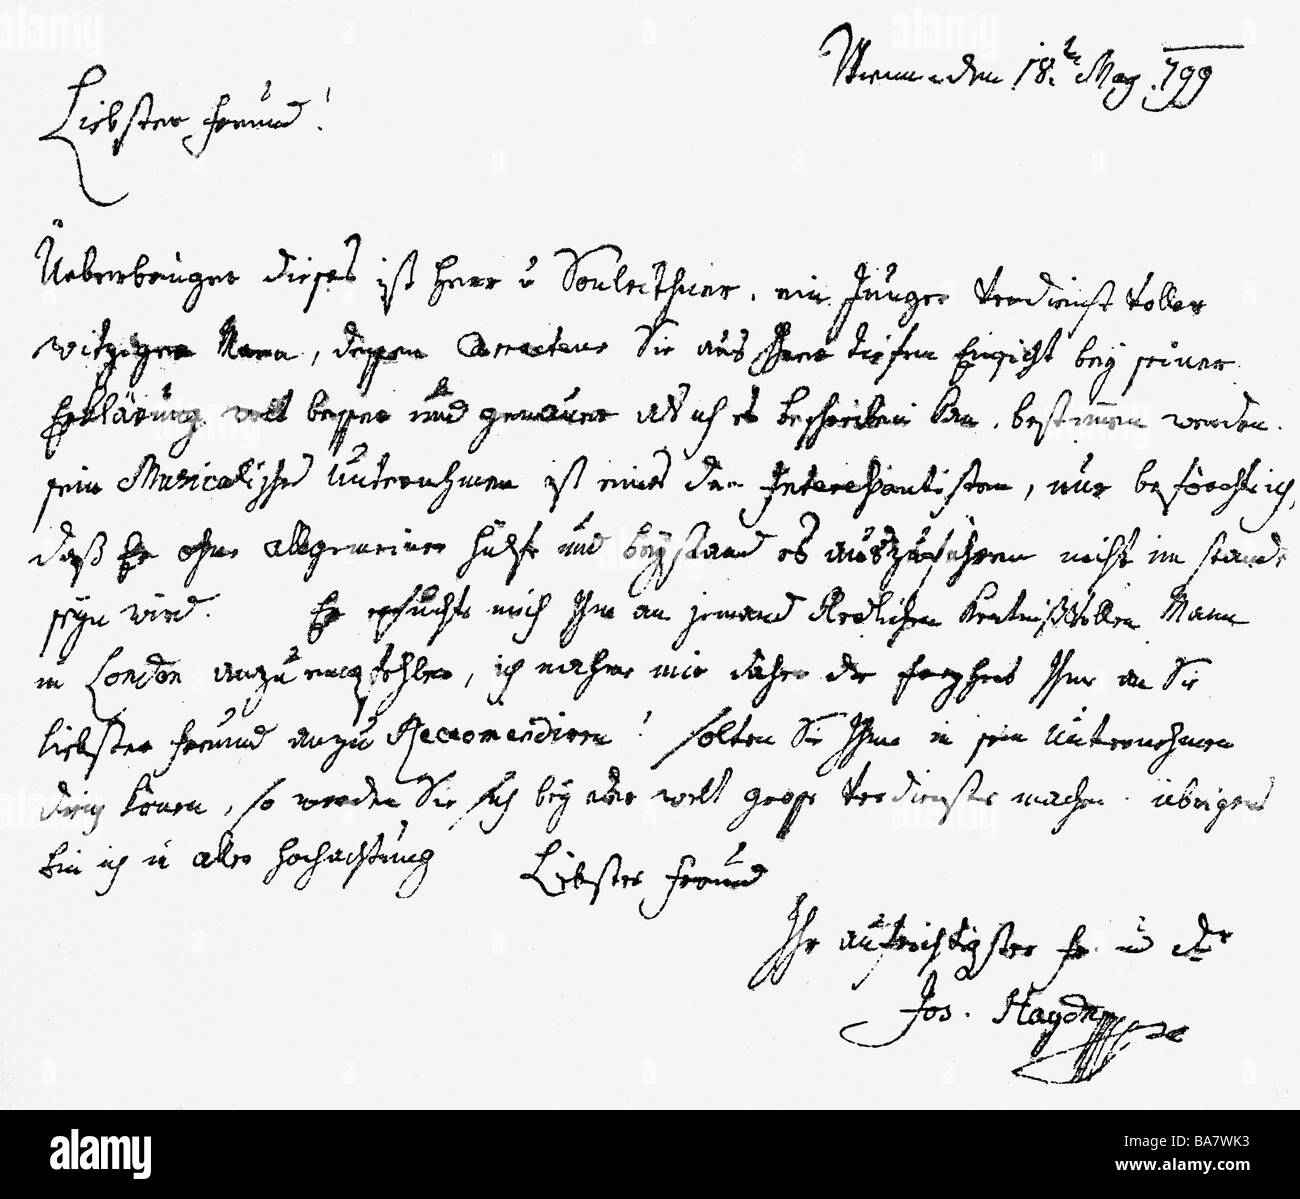 Wienn den 18ten May 799
Liebster Freund!
Ueberbringer dieses ist Herr v Sonleithner, ein Junger verdienstvoller
witziger Mann, dessen Caracteur Sie aus Ihrer tiefen Einsicht bey seiner
Erklärung weit besser und genauer als ich es beschreiben kan, bestimmen werden.
sein Musicalisches Unternehmen ist eines der Interessantisten, nur beförcht ich,
daß Er ohne allgemeiner Hülfe und beystand es auszuführen nicht im stande
seyn wird. Er ersuchte mich Ihn an jemand Redlichen kentnißvollen Mann
in London anzuempfehlen, ich nehme mir daher die freyheit Ihn an Sie
liebster Freund anzu Recomendiren! solten Sie Ihm in sein Unternehmen
können, so werden Sie sich bey der welt grosse verdienste machen. übrigens
bin ich in aller Hochachtung Liebster Freund
Ihr aufrichtigster Fr. und dr
Jos. Haydn
alamy
Image ID: BA7WK3
www.alamy.com